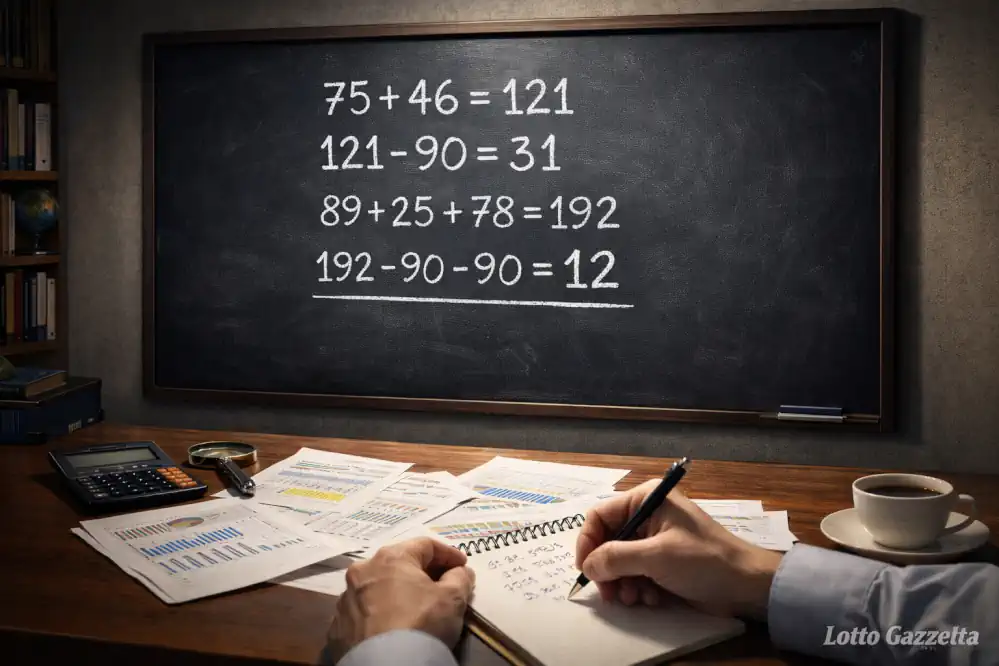 75 + 46 = 121
121 - 90 = 31
89 + 25 + 78 = 192
192 - 90 - 90 = 12
Lotto Gazzetta